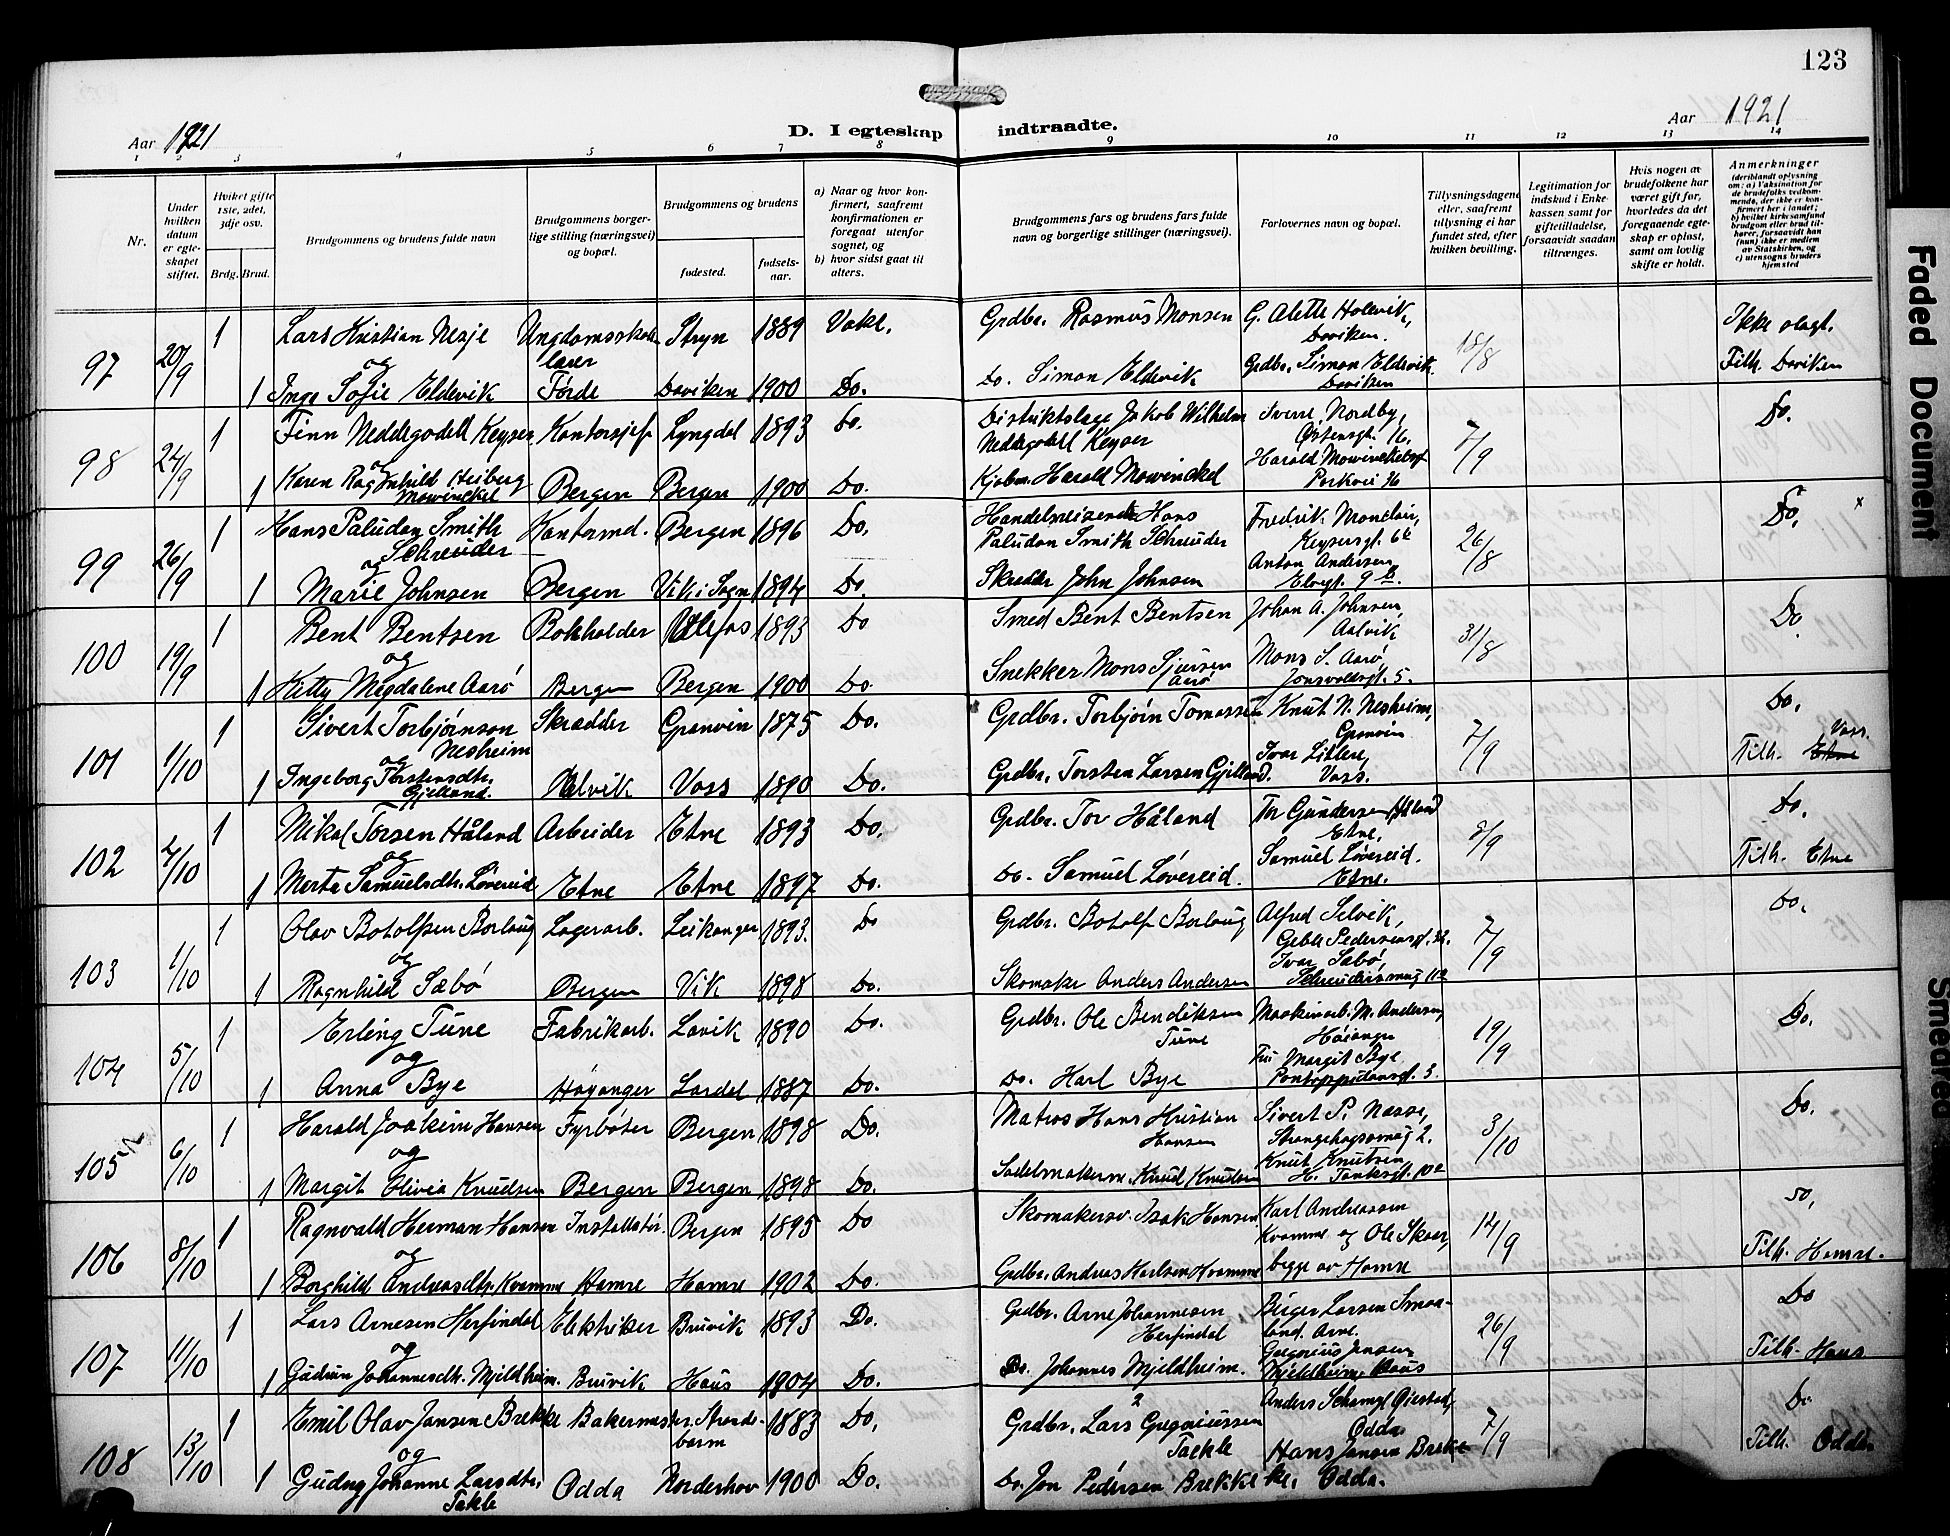 123
Aar 1921
D. I egteskap indtraadte.
Aar 1921
1 2 3 4 5 6 7 8 9 10 11 12 13 14
Nr.
Under hvilken datum er egteskapet stiftet.
Hvilket gifte 1ste, 2det, 3dje osv.
Brdg. Brud.
Brudgommens og brudens fulde navn
Brudgommens borgerlige stilling (næringsvei) og bopæl.
Brudgommens og brudens
fødested.
fødselsaar.
a) Naar og hvor konfirmert, saafremt konfirmationen er foregaat utenfor sognet, og
b) hvor sidst gaat til alters.
Brudgommens fars og brudens fars fulde navn og borgerlige stillinger (næringsvei).
Forlovernes navn og bopæl.
Tillysningsdagene eller, saafremt tillysning ei har fundet sted, efter hvilken bevilling.
Legitimation for indskud i Enkekassen samt for giftetilladelse, forsaavidt saadan tiltrænges.
Hvis nogen av brudefolkene har været gift før, hvorledes da det foregaaende egteskap er opløst, samt om lovlig skifte er holdt.
Anmerkninger
(deriblandt oplysning om: a) Vaksination for de brudefolks vedkommende, der ikke er konfirmert her i landet; b) hvilket kirkesamfund brudgom eller brud tilhører, forsaavidt han (hun) ikke er medlem av Statskirken, og c) utensogns bruders hjemsted
97 20/9 1 Lars Kristian Nesje Ungdomsskolelærer Stryn 1889 Grdbr. Rasmus Monsen G. Alette Holevik, Daviken. 18/8
og
1 Inga Sofie Eldevik Førde Daviken 1900 Do. Do. Simon Eldevik Grdbr. Simon Eldevik Daviken Tilh. Daviken
98 24/9 1 Finn Neddegodell Keyser Kontorsjef Lyngdal 1893 Do. Distriktslæge Jakob Wilhelm Neddegodell Keyser Sverre Nordby, Østensgt. 16. 7/9 Do.
og
1 Karen Ragnhild Heiberg Mowinckel Bergen Bergen 1900 Do. Kjøbm. Harald Mowinckel Harald Mowinckel Parkvei 36
99 26/9 1 Hans Paludan Smith Schreuder Kontormd. Bergen 1896 Do. Handelsreisende Hans Paludan Smith Schreuder Fredrik Monclair, Keysersgt. 6 26/8 Do. x
og
1 Marie Johnsen Bergen Vik i Sogn 1894 Do. Skrædder John Johnsen Anton Andersen
100 19/9 1 Bent Bentsen Bokholder Ulefos 1893 Do Smed Bent Bentsen Johan A. Johnsen, Aalvik 31/8 Do.
og
1 Kitty Magdalene Aarø Bergen Bergen 1900 Do. Snekker Mons Sjursen Aarø Mons S. Aarø, 5.
101 1/10 1 Sivert Torbjørnson Nesheim Skrædder Granvin 1875 Do. Grdbr. Torbjørn Tomassen Knut N. Nesheim, Granvin 7/9 Do.
og
1 Ingeborg Torstensdtr. Gjelland. Alvik Voss 1890 Do. Grdbr. Torsten Larsen Gjelland. Ivar Litlere, Voss. Tilh. Etne Voss.
102 4/10 1 Mikal Torsen Håland Arbeider Etne 1893 Do. Grdbr. Tor Håland Tor Gundersen Håland Etne, 8/9 Do.
og
1 Merta Samuelsdtr. Løvereid Etne Etne 1897 Do. Do. Samuel Løvereid. Samuel Løvereid. Etne. Tilh. Etne
103 1/10 1 Olav Botolfsen Borlaug Lagerarb. Leikanger 1893. Do Grdbr. Botolf Borlaug Alfred Selvik, Geble Pedersensgt. 32. 7/9 Do.
og
1 Ragnhild Sæbø Bergen Vik 1898 Do. Skomaker Anders Andersen Ivar Sæbø,
104 5/10 1 Erling Tune Fabrikarb. Lavik 1890 Do. Grdbr. Ole Bendiksen Tune Maskinarb. M. Andersen, Høianger 19/9 Do.
og
1 Anna Bye Høyanger Lærdal 1887 Do. Do. Karl Bye Fru Margit Bye Pontoppidansgt. 3.
105 6/10 1 Harald Joakim Hansen Fyrbøter Bergen 1898 Do. Matros Hans Kristian Hansen Sivert P. Næsse, Strangehagsmug 2. 3/10 Do.
og
1 Margit Olivia Knudsen Bergen Bergen 1898 Do. Sadelmakerm. Knud Knudsen Knut Knutsen H. Tanksgt. 10 a
106 8/10 1 Ragnvald Herman Hansen Installatør. Bergen 1895 Do Skomakersv. Isak Hansen Karl Andreassen Kvamme og Ole Skaar, 14/9 Do,
og
1 Borghild Andreasdtr. Kvamme Hamre Hamre 1902 Do. Grdbr. Andreas Karlsen Kvamme begge av Hamre Tilh. Hamre.
107 11/10 1 Lars Arnesen Herfindal Elektriker Bruvik 1893 Do. Grdbr. Arne Johannesen Herfindal Birger Larsen Smaaland. Arne. 26/9 Do
og
1 Gudrun Johannesdtr. Mjeldheim. Bruvik Haus 1904 Do. Do. Johannes Mjeldheim. Gregorius Jensen Mjeldheim, Haus Tilh. Haus
108 13/10 1 Emil Olav Jansen Brekke Bakermester. Strandebarm 1883 Do. 2 Grdbr. Lars Gregoriussen Takle Anders Odda 7/9 Do.
og
1 Gudny Johanne Larsdtr. Takle Odda Norderhov 1900 Do. Do. Jon Pedersen Brekke Hans Jansen Brekke, Odda. Tilh. Odda.
Faded Document
Smeared